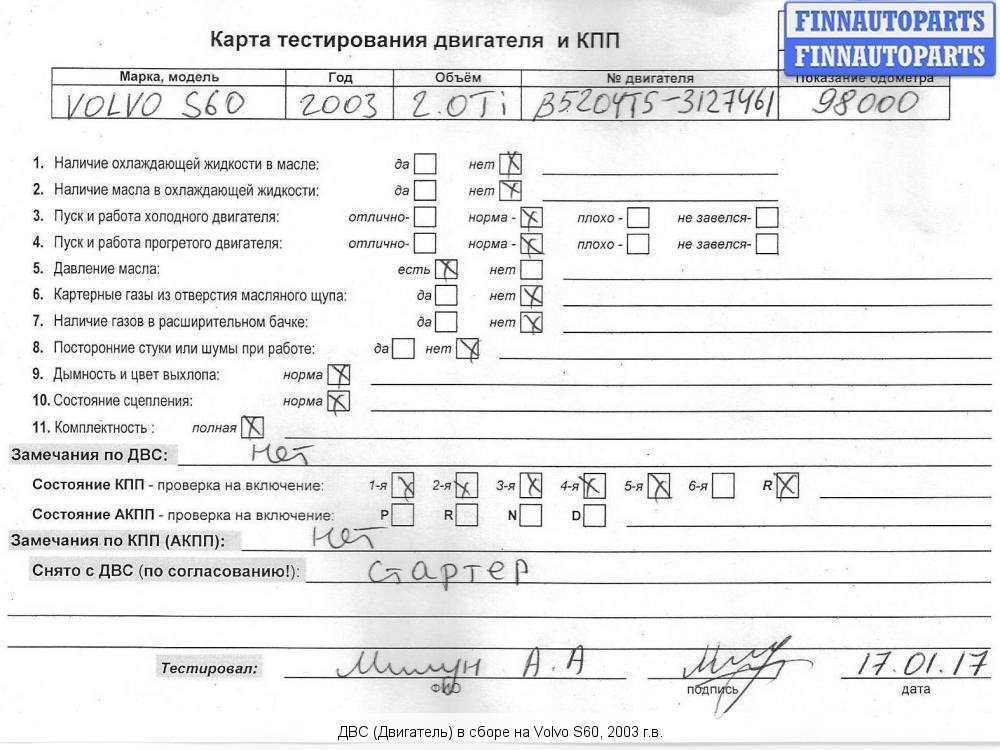 FINNAUTOPARTS
FINNAUTOPARTS
Карта тестирования двигателя и КПП
Марка, модель Год Объём № двигателя Показание одометра
VOLVO S60 2003 2.0Ti B5204T5-3127461 98000
1. Наличие охлаждающей жидкости в масле: да нет X
2. Наличие масла в охлаждающей жидкости: да нет X
3. Пуск и работа холодного двигателя: отлично- норма - X плохо - не завелся-
4. Пуск и работа прогретого двигателя: отлично- норма - X плохо - не завелся-
5. Давление масла: есть X нет
6. Картерные газы из отверстия масляного щупа: да нет X
7. Наличие газов в расширительном бачке: да нет X
8. Посторонние стуки или шумы при работе: да нет X
9. Дымность и цвет выхлопа: норма X
10. Состояние сцепления: норма X
11. Комплектность : полная X
Замечания по ДВС: нет
Состояние КПП - проверка на включение: 1-я X 2-я X 3-я X 4-я X 5-я X 6-я R X
Состояние АКПП - проверка на включение: P R N D
Замечания по КПП (АКПП): нет
Снято с ДВС (по согласованию!): стартер
Тестировал: Милун А.А 17.01.17
ФИО подпись дата
ДВС (Двигатель) в сборе на Volvo S60, 2003 г.в.